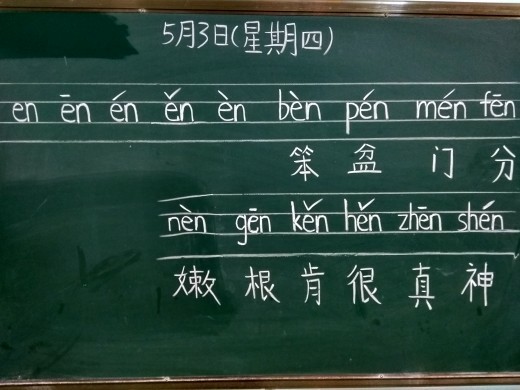 5月3日(星期四)
en ēn én ěn èn bèn pén mén fēn
笨 盆 门 分
nèn gēn kěn hěn zhēn shén
嫩 根 肯 很 真 神